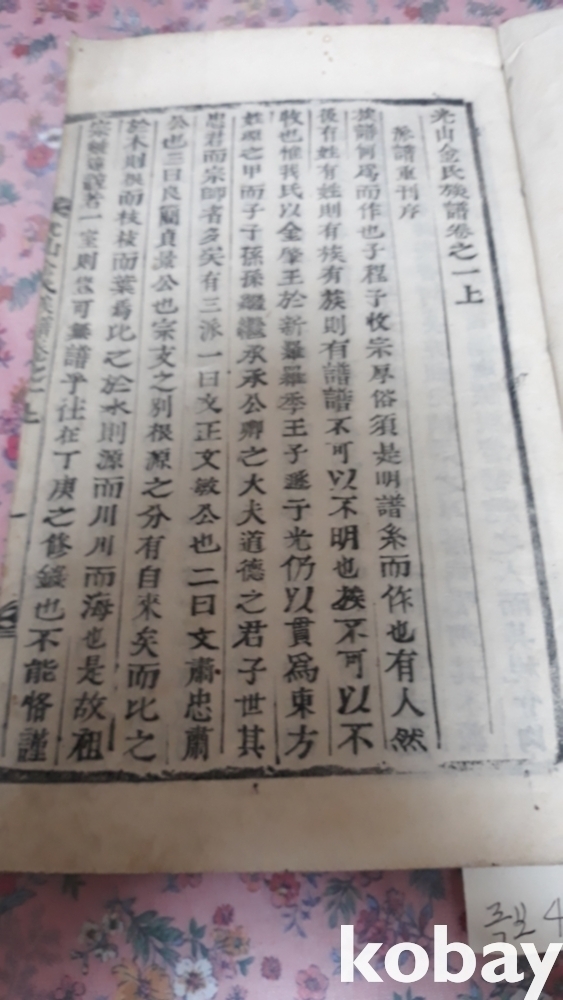 光山金氏族譜卷之一上
派譜重刊序
族譜何爲而作也子程子收宗厚俗須是明譜系而作也有人然
後有姓有姓則有族有族則有譜譜不可以不明也族不可以不
收也惟我氏以金肇王於新羅羅季王子遯于光仍以貫爲東方
姓之甲而子子孫孫繼承承公卿之大夫道德之君子世其
忠君而宗師者多矣有三派一曰文正文敏公也二曰文肅忠肅
公也三曰良簡貞公也宗支之別根源之分有自來矣而比之
於木則根而枝枝而葉爲比之於水則源而川川而海也是故祖
宗遠一室則豈可無譜乎往在丁庚之修也不能恪謹
光山金氏族譜卷之一上
족보 4
kobay